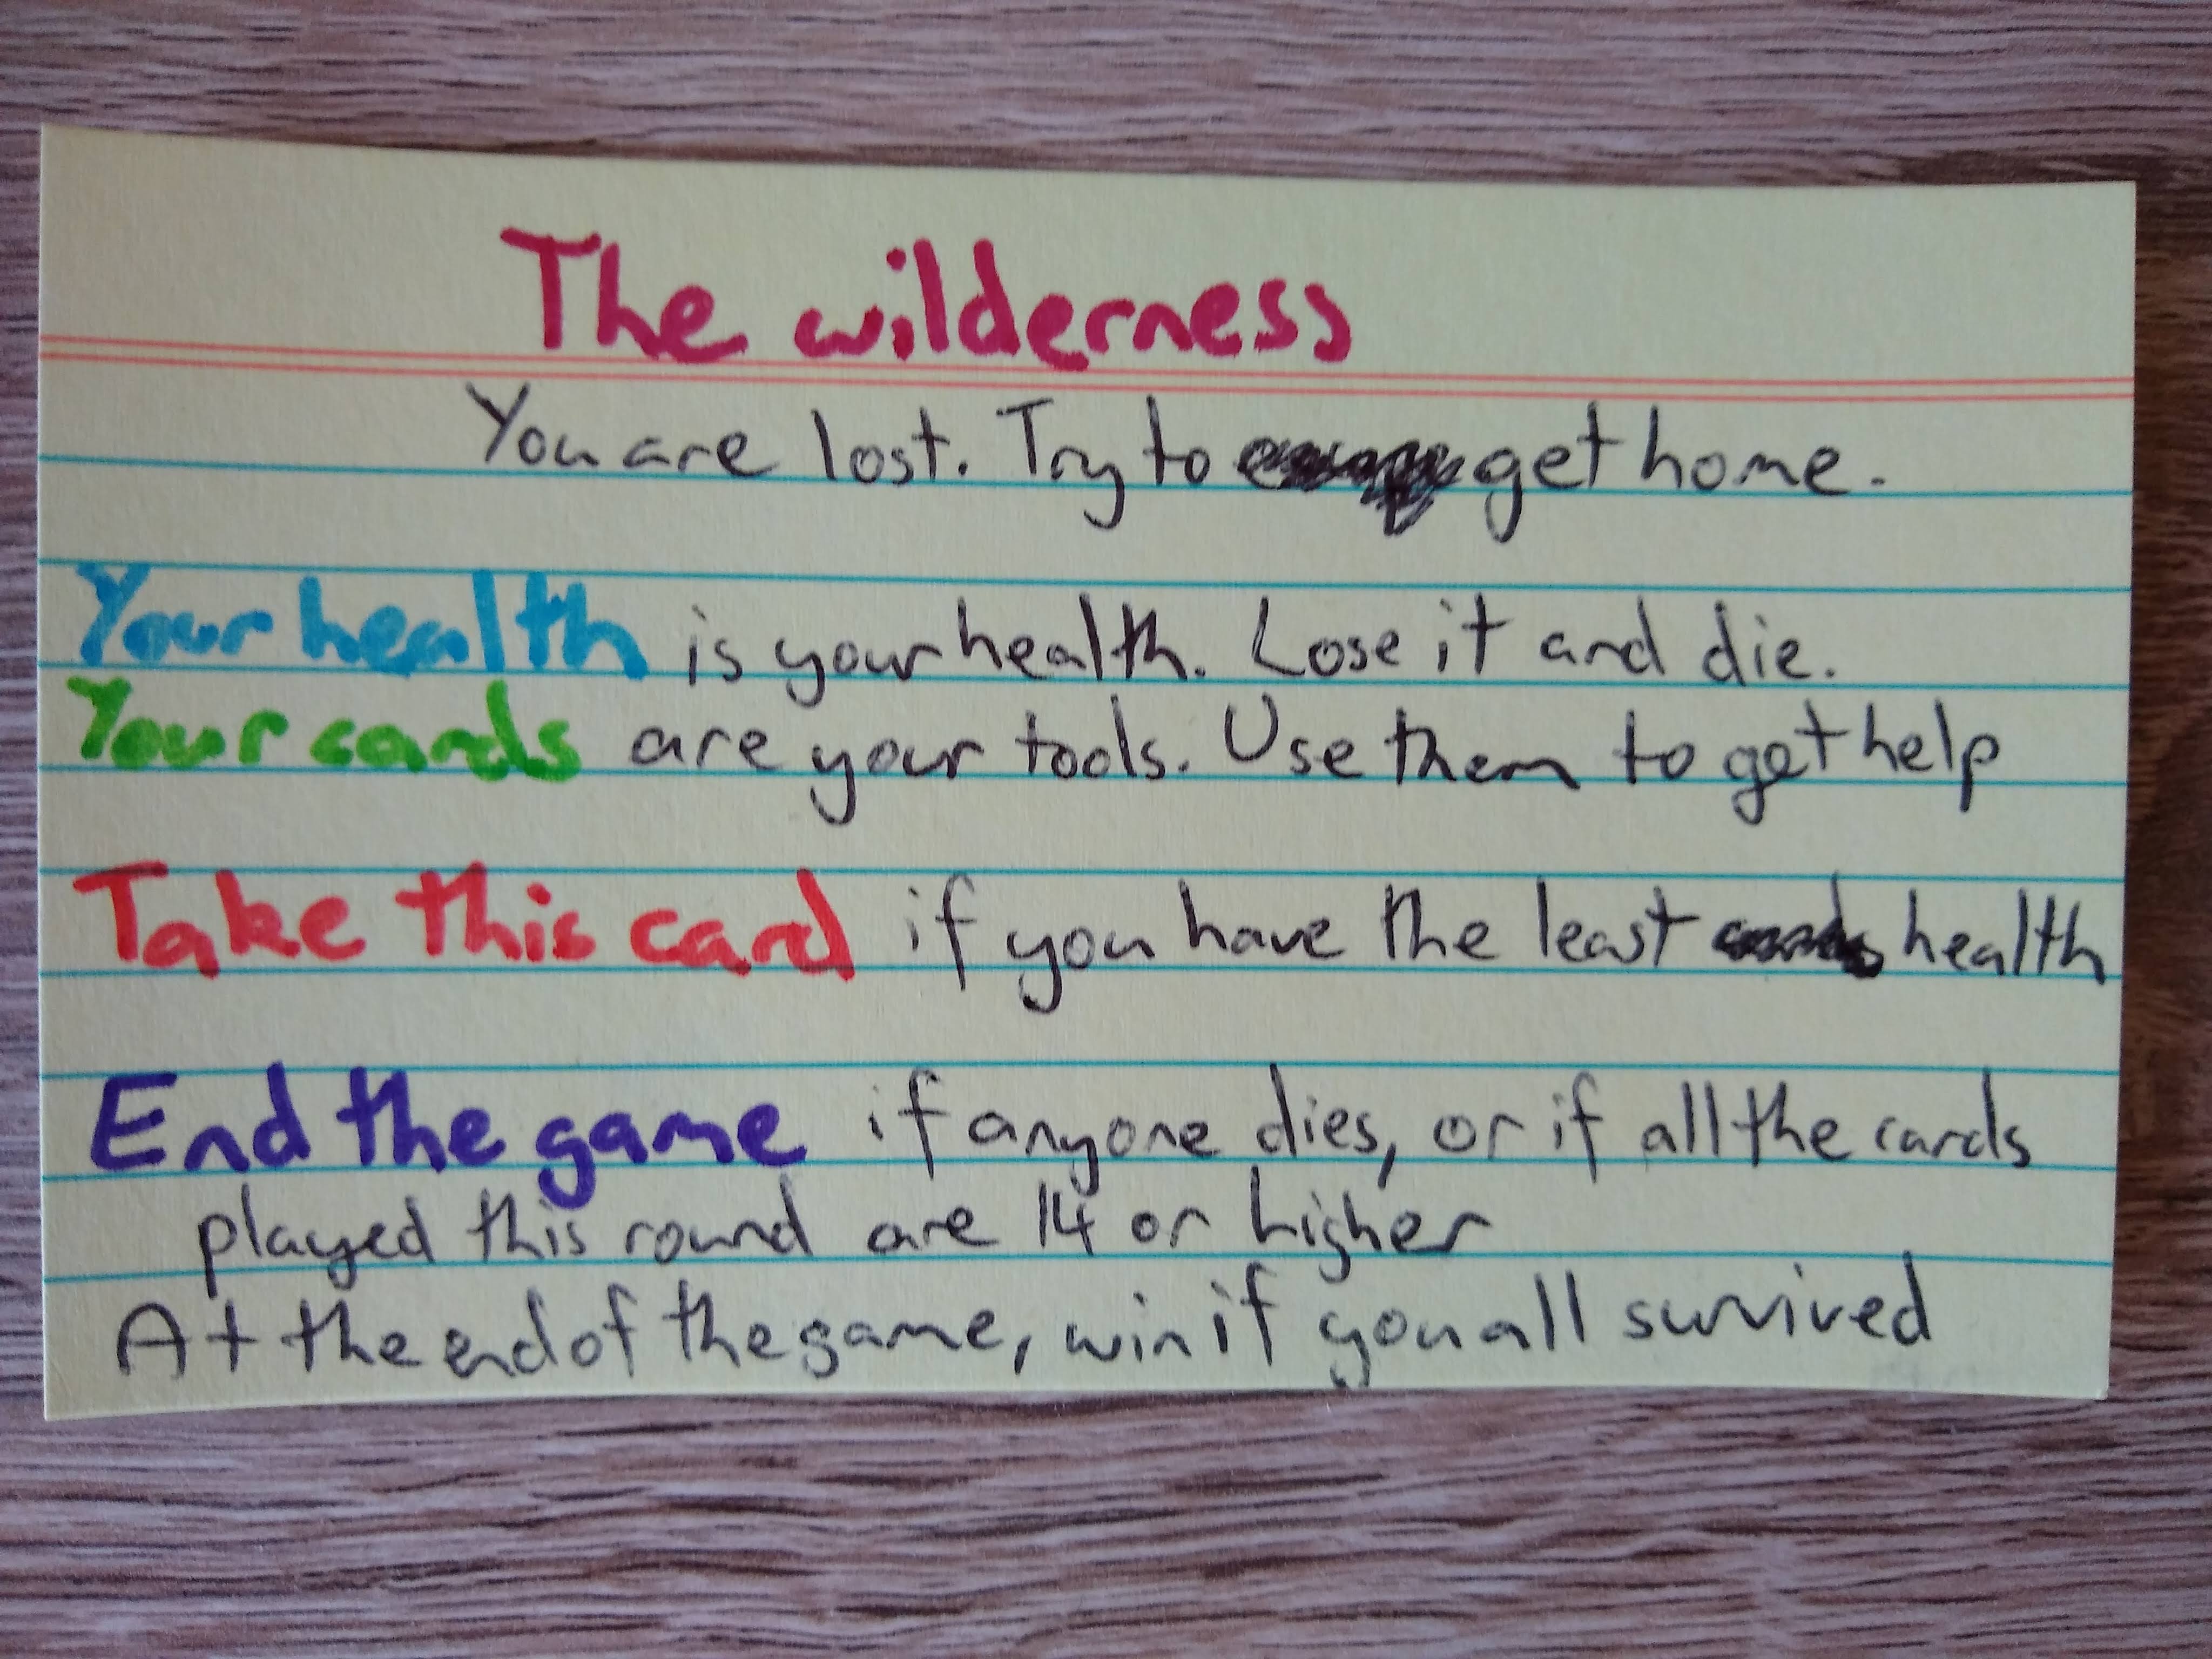 The wilderness
You are lost. Try to get home.
Your health is your health. Lose it and die.
Your cards are your tools. Use them to get help
Take this card if you have the least health
End the game if anyone dies, or if all the cards
played this round are 14 or higher
At the end of the game, win if you all survived